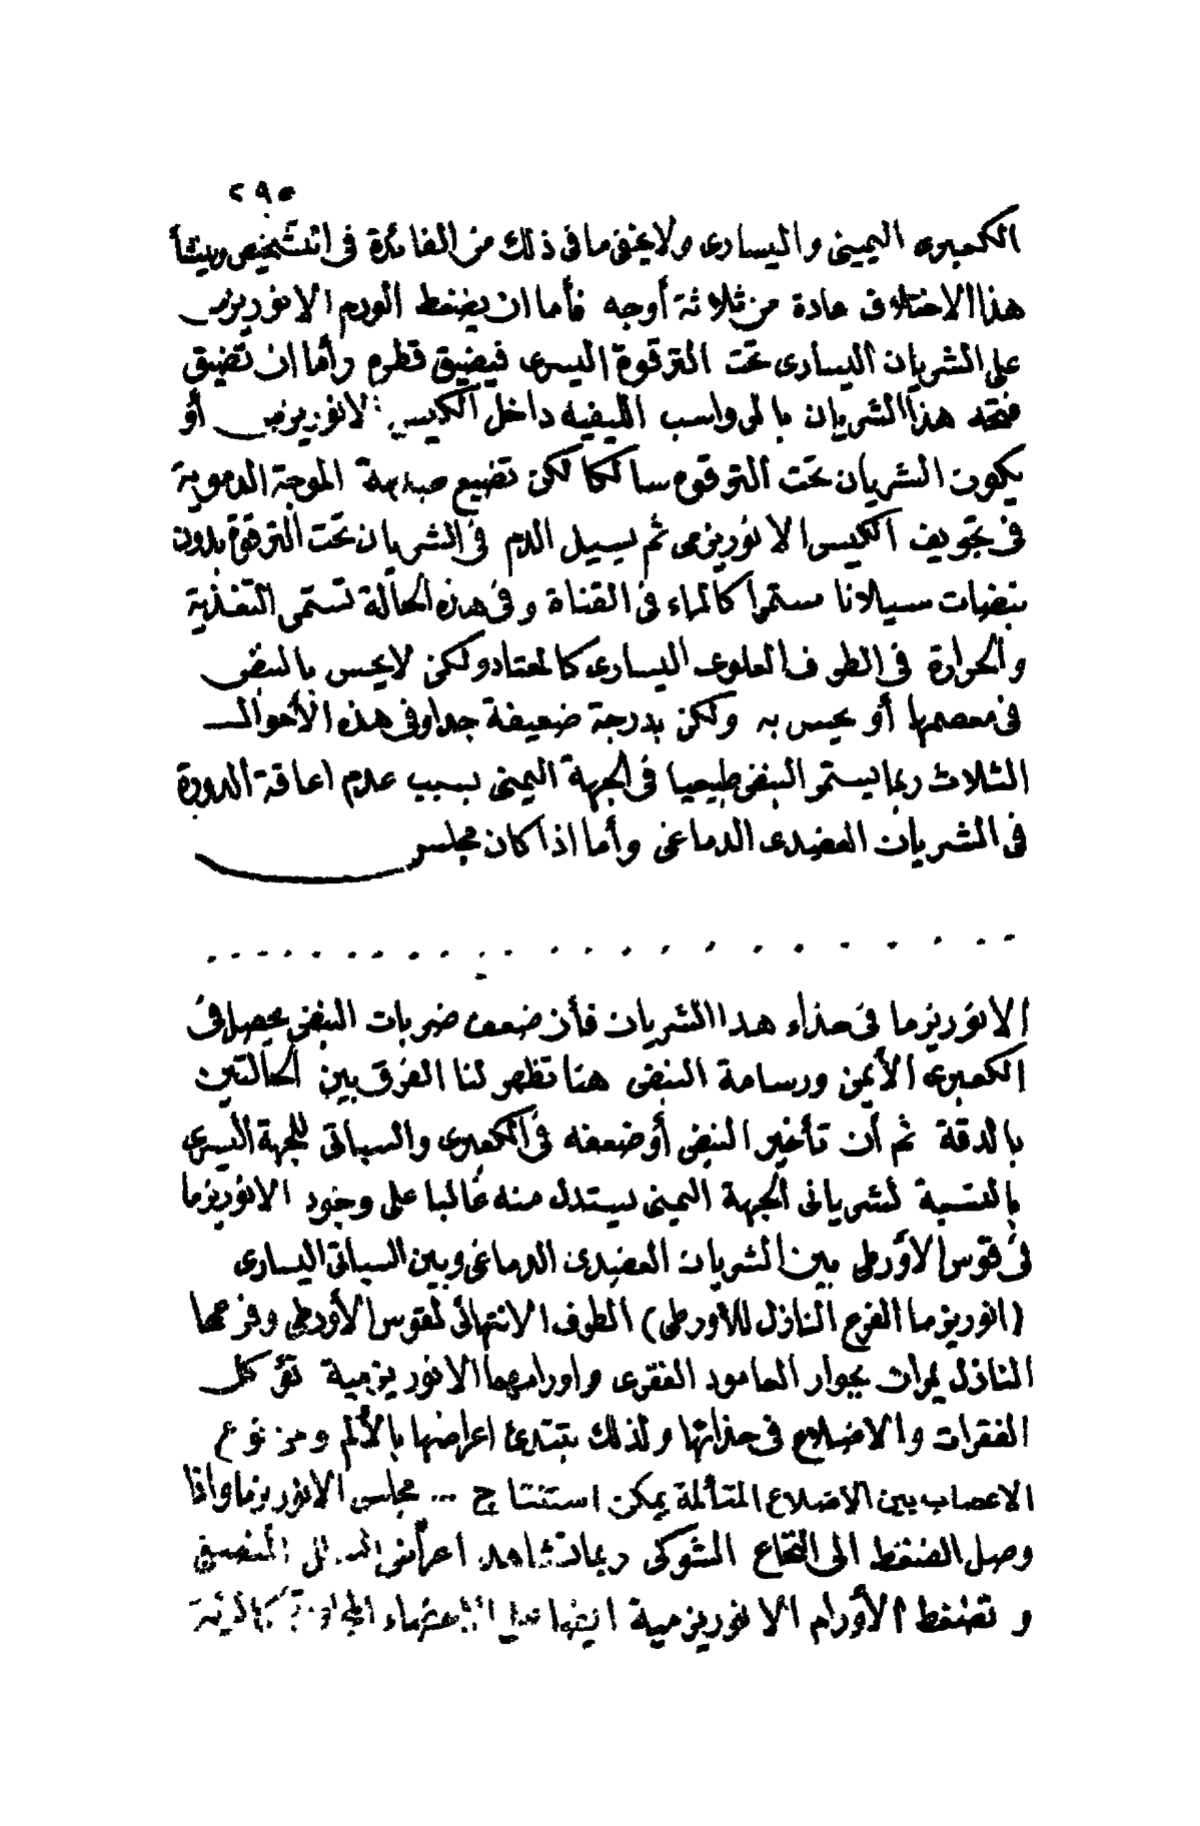 ٢٩٥
الكعبرى اليمينى واليسارى ولا يخفى ما فى ذلك من الفائدة فى التشخيص وينشأ
هذا الاختلاف عادة من ثلاثة أوجه فأما ان يضغط الورم الانوريزمى
على الشريان اليسارى تحت الترقوة اليسرى فيضيق قطره وأما ان تضيق
فتحه هذا الشريان بالرواسب الليفيه داخل الكيس الانوريزمى أو
يكون الشريان تحت الترقوه سالكا لكن تضيع صدمة الموجة الدموية
فى تجويف الكيس الانوريزمى ثم يسيل الدم فى الشريان تحت الترقوة بدون
نبضات سيلانا مستمرا كالماء فى القناة وفى هذه الحالة تستمى التغذية
والحرارة فى الطرف العلوى اليسارى كالمعتاد ولكن لا يحس بالنبض
فى معصمها أو يحس به ولكن بدرجة ضعيفة جدا وفى هذه الأحوال
الثلاث ربما يستمر النبض طبيعيا فى الجهة اليمنى بسبب عدم اعاقة الدورة
فى الشريان العضدى الدماغى وأما اذا كان مجلس
الانوريزما فى حذاء هذا الشريان فأن ضعف ضربات النبض يحصل فى
الكعبرى الأيمن ورسامة النبض هنا تظهر لنا الفرق بين الحالتين
بالدقة ثم أن تأخير النبض أو ضعفه فى الكعبرى والسباتى للجهة اليسرى
بالنسبة لشريانى الجهة اليمنى يستدل منه غالبا على وجود الانوريزما
فى قوس الأورطى بين الشريان العضدى الدماغى وبين السباتى اليسارى
(انوريزما الفرع النازل للأورطى) الطرف الانتهائى لقوس الأورطى وفرعها
النازل يمران بجوار العامود الفقرى واورامهما الانوريزمية تؤكل
الفقرات والاضلاع فى حذائها ولذلك يبتدئ اعراضها بالألم ومن نوع
الاعصاب بين الاضلاع المتألمة يمكن استنتاج ... مجلس الانوريزما واذا
وصل الضغط الى النخاع الشوكى ربما تشاهد اعراض الشلل النصفى
وتضغط الأورام الانوريزمية ايضا على الاعضاء المجاورة كالرئة